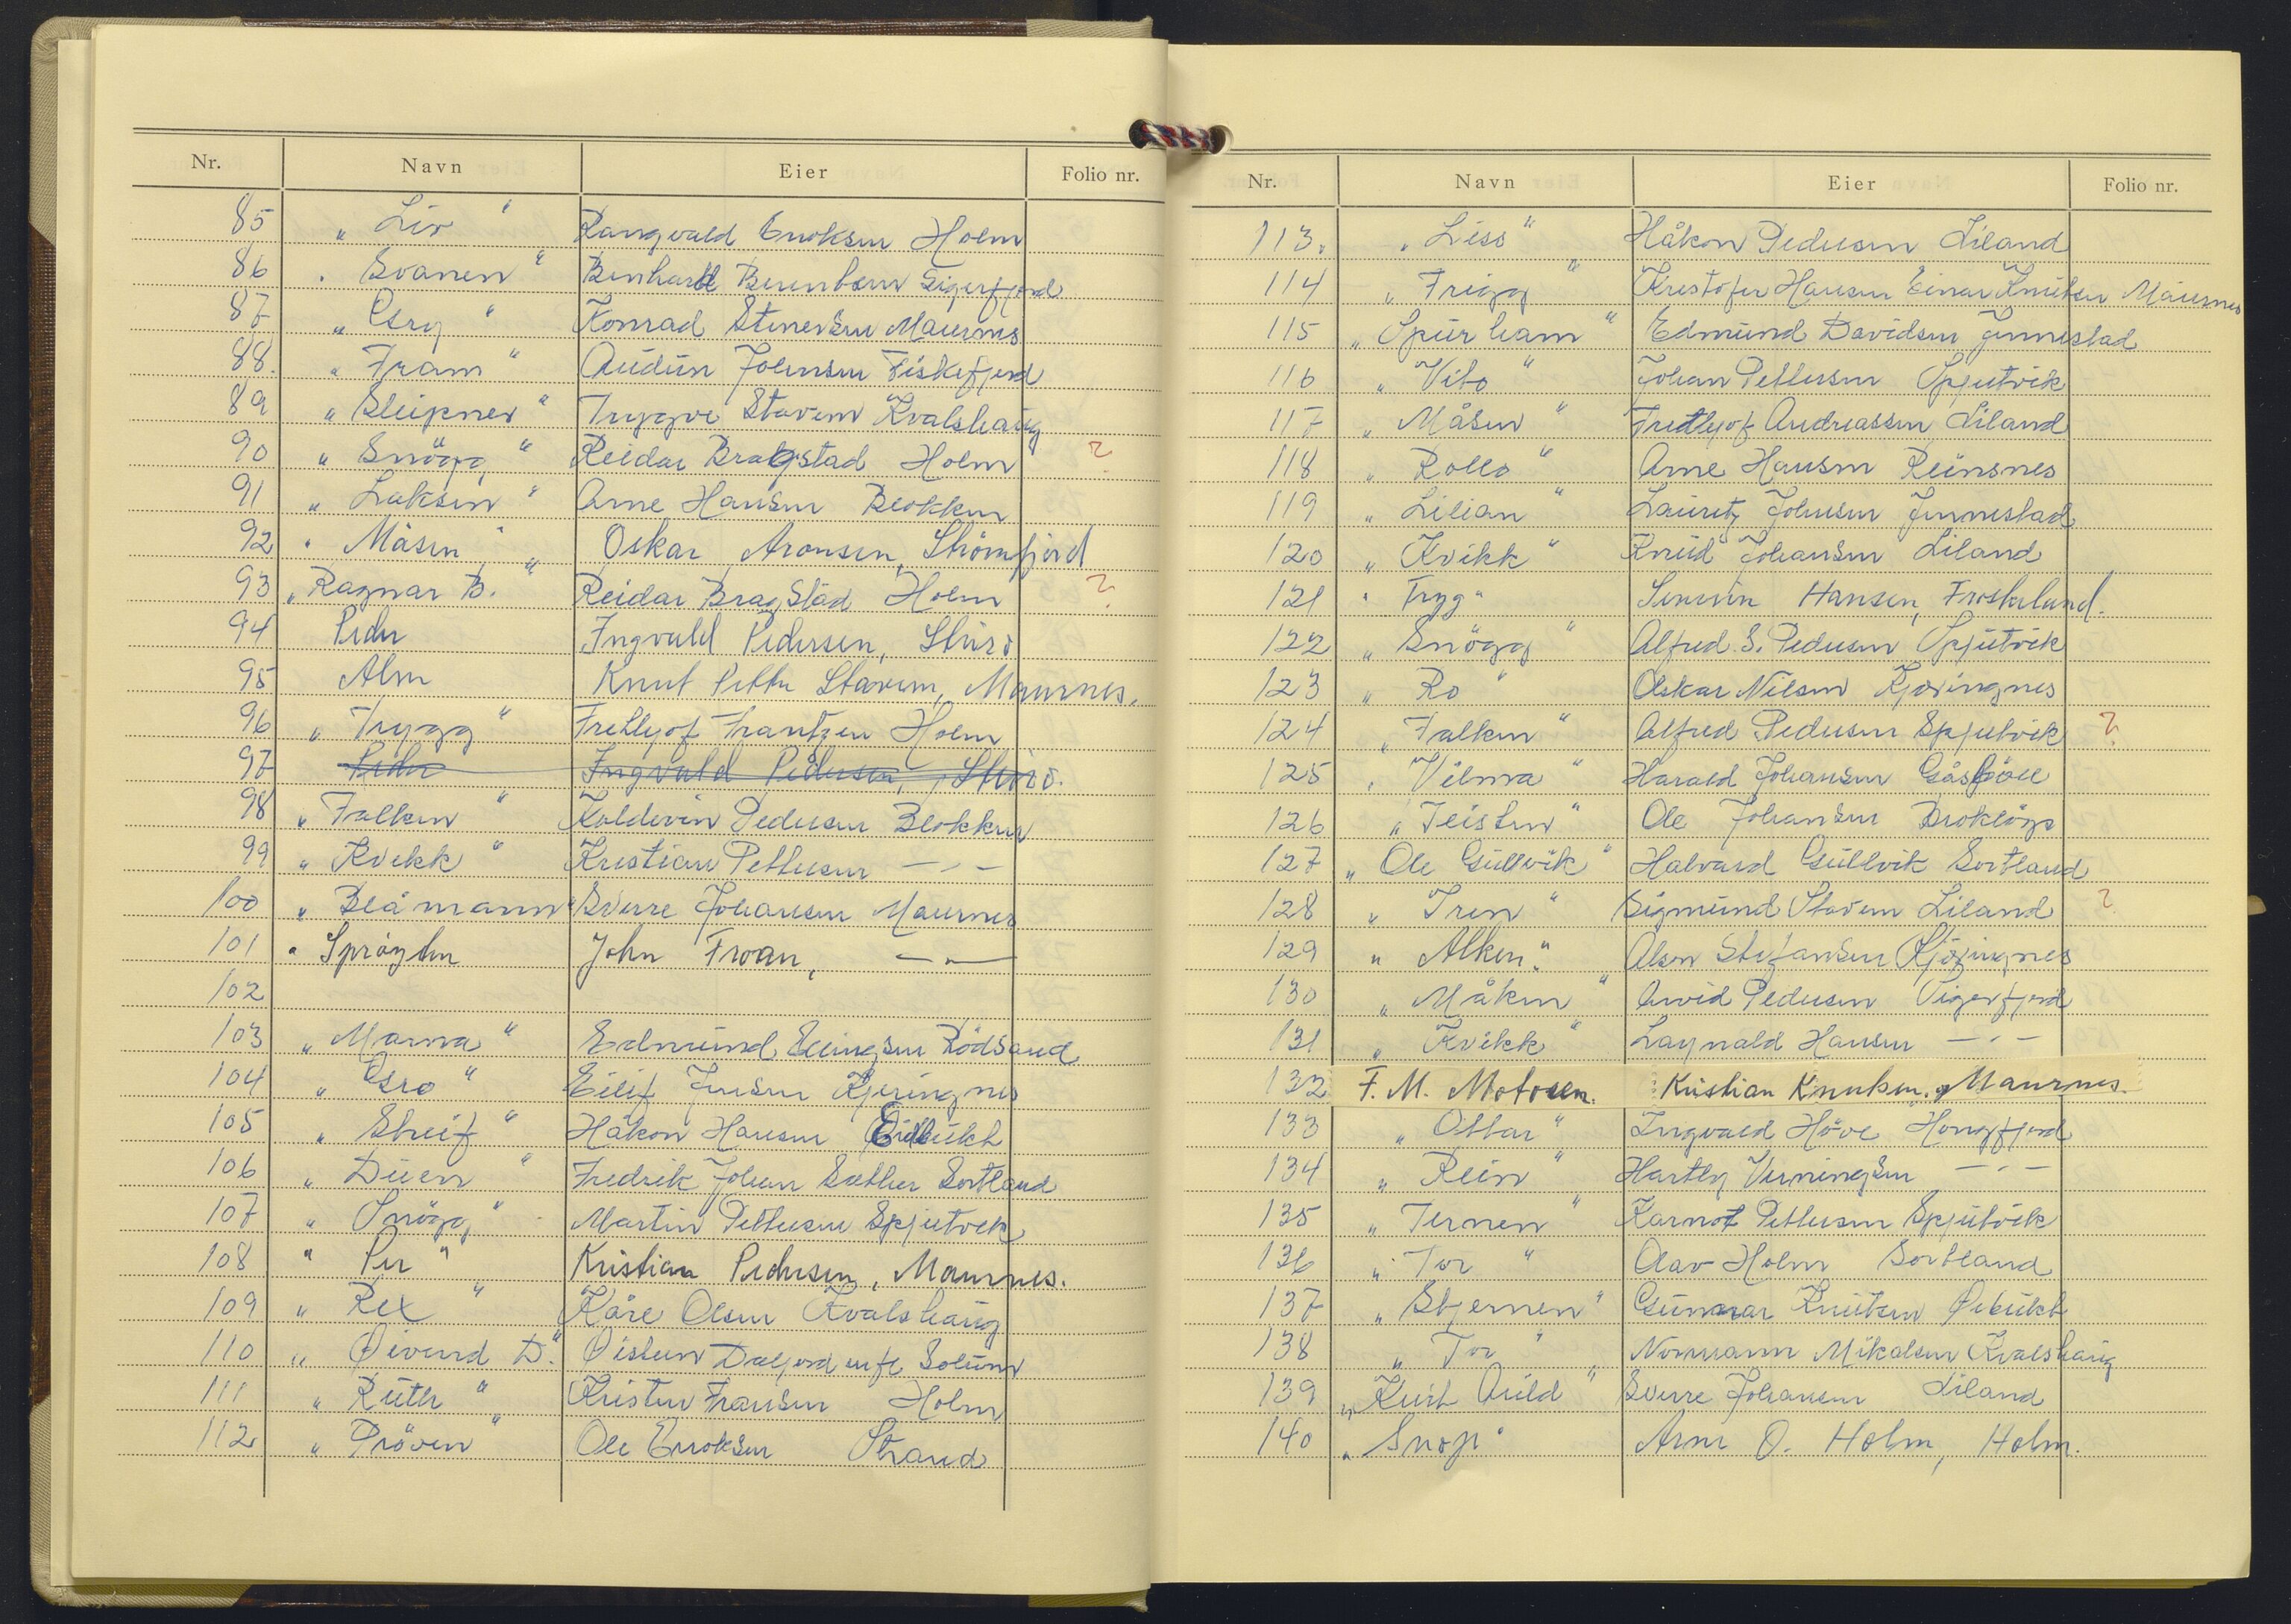 Nr. Navn Eier Folio nr.
85 „ Liv “ Rangvald Enoksen Holm
86 „ Svanen “ Bernhard Berentsen Sigerfjord
87 „ Gry “ Konrad Stenersen Maurnes
88. „ Fram “ Audun Johnsen Fiskefjord
89 „ Sleipner “ Tryggve Stavem Kvalshaug
90 „ Snögg “ Reidar Bragstad Holm ?
91 „ Laksen “ Arne Hansen Blokken
92 „ Måsen “ Oskar Aronsen, Strömfjord
93 „ Ragnar B. “ Reidar Bragstad Holm ?
94 Peder Ingvald Pedersen, Stürö
95 Alm Knut Petter Stavem, Maurnes.
96 „ Trygg “ Frethjof Frantzen Holm
97 Peder Ingvald Pedersen,
98 „ Falken “ Koldevin Pedersen Blokken
99 „ Kvikk “ Kristian Pettersen — „ —
100 „ Blåmann “ Sverre Johansen Maurnes
101 „ Spröyten John Froan, — „ —
102
103 „ Marna “ Edmund Ellingsen Rödsand
104 „ Gro “ Eilif Jensen Kjeringnes
105 „ Streif “ Håkon Hansen
106 „ Duen “ Fredrik Johan Sæther Sortland
107 „ Snögg “ Martin Pettersen Spjutvik
108 „ Per “ Kristian Pedersen, Maurnes.
109 „ Rex “ Kåre Olsen Kvalshaug
110 „ Øivind D. “ Øistein Daljord Solum
111 „ Ruth “ Kristen Fransen Holm
112 „ Pröven “ Ole Enoksen Strand
Nr. Navn Eier Folio nr.
113. „ Liss “ Håkon Pedersen Liland
114 „ Frigg “ Kristofer Hansen Einar Knutsen Maurnes
115 „ Spurham “ Edmund Davidsen Jennestad
116 „ Vito “ Johan Pettersen Spjutvik
117 „ Måsen “ Fredtjof Andreassen Liland
118 „ Rollo “ Arne Hansen Reinsnes
119 „ Lilian “ Lauritz Johnsen Jennestad
120 „ Kvikk “ Knud Johansen Liland
121 „ Tryg “ Hansen, Froskeland.
122 „ Snögg “ Alfred S. Pedersen Spjutvik
123 „ Ro “ Oskar Nilsen Kjæringnes
124 „ Falken “ Alfred Pedersen Spjutvik ?
125 „ Vilma “ Harald Johansen Gåsböll
126 „ Teisten “ Ole Johansen Brokløys
127 „ Ole Gullvik “ Halvard Gullvik Sortland
128 „ Iren “ Sigmund Stavem Liland ?
129 „ Alken “ Alson Stefansen Kjæringnes
130 „ Måken “ Arvid Pedersen Vigerfjord
131 „ Kvikk “ Hansen — „ —
132 F. M. Motoren. Kristian Knutsen, Maurnes.
133 „ Ottar “ Ingvald Höve Hongfjord
134 „ Rein “ Hartly Verningsen — „ —
135 „ Ternen “ Karnot Pettersen Spjutvik
136 „ Tor “ Olav Holm Sortland
137 „ Stjernen “ Gunnar Knutsen
138 „ Tor “ Normann Mikalsen Kvalshaug
139 „ Kurt Auld “ Sverre Johansen Liland
140 „ Snopp “ Arne O. Holm, Holm.